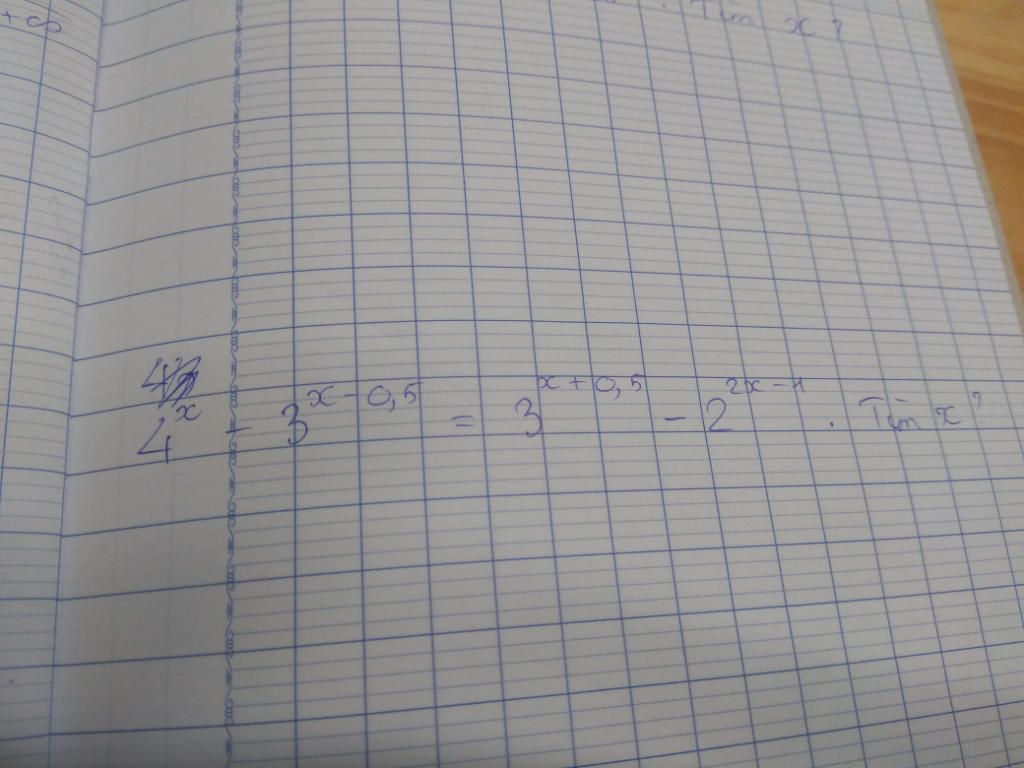 +∞
Tìm x?
4^x - 3^{x-0,5} = 3^{x+0,5} - 2^{2x-1} . Tìm x?